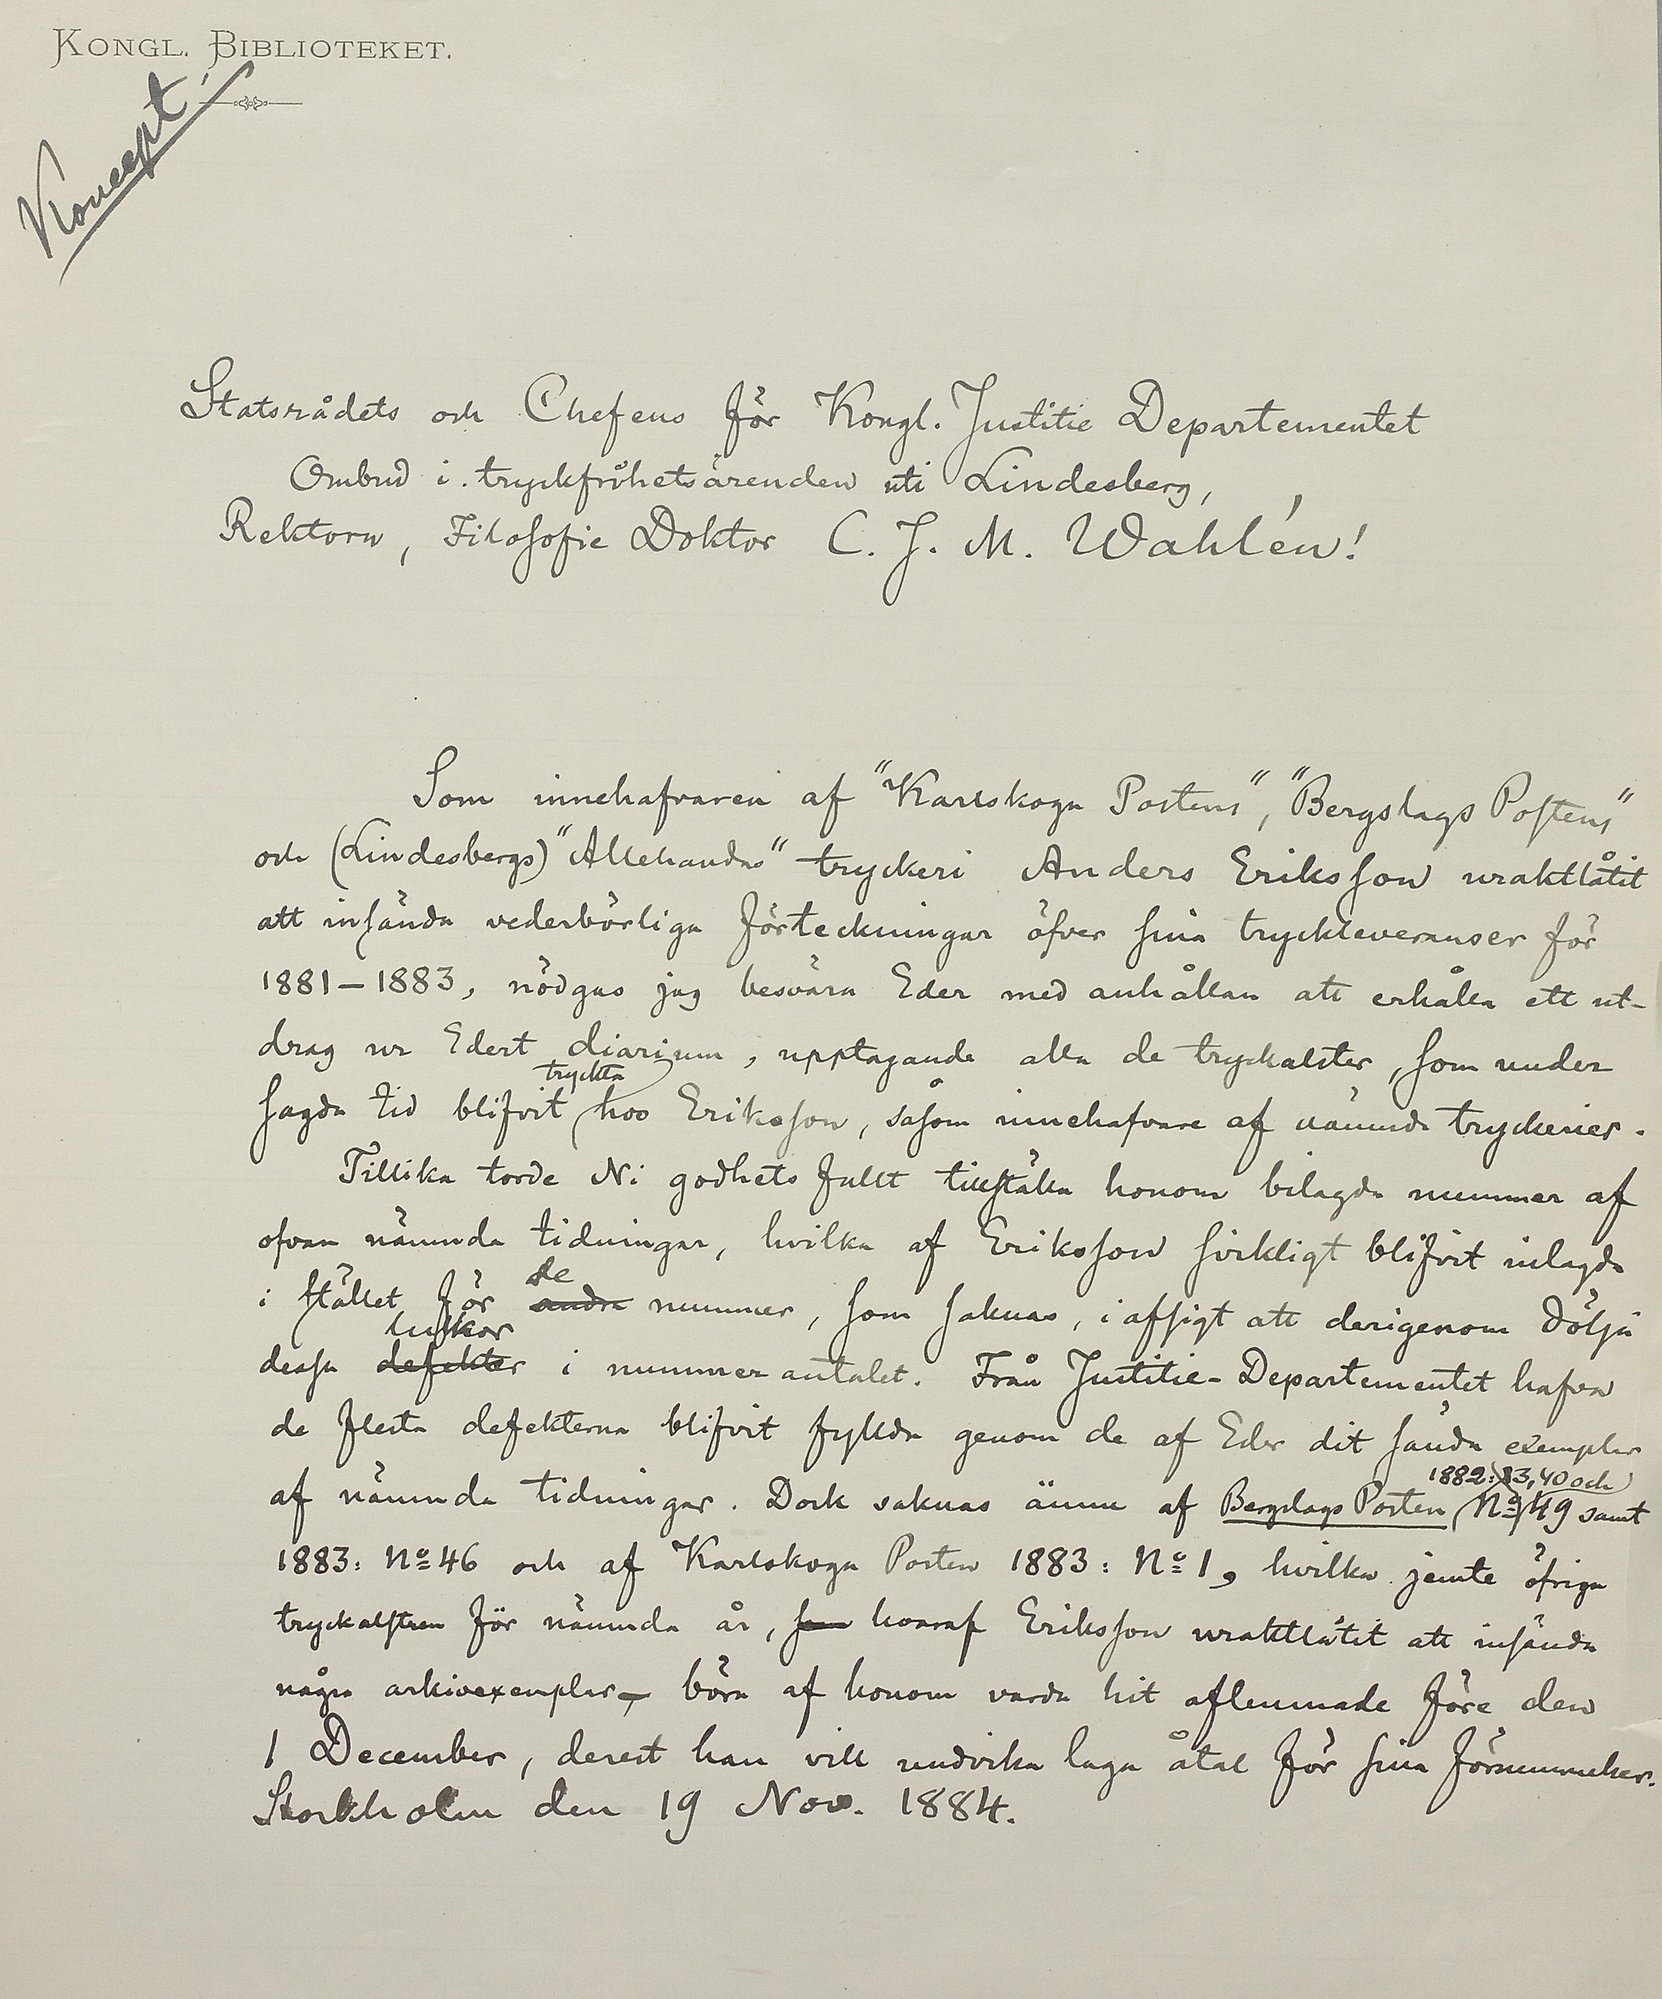 KONGL. BIBLIOTEKET.
Koncept
Statsrådets och Chefens för Kongl. Justitie Departementet
Ombud i tryckfrihetsärenden uti Lindesberg,
Rektorn, Filosofie Doktor C. J. M. Wahlén!
Som innehafvaren af "Karlskoga Postens", "Bergslags Postens"
och (Lindesbergs) "Allehandas" tryckeri Anders Eriksson uraktlåtit
att insända vederbörliga förteckningar öfver sina tryckleveranser för
1881–1883, nödgas jag besvära Eder med anhållan att erhålla ett ut-
drag ur Edert diarium, upptagande alla de tryckalster, som under
tryckta
sagda tid blifvit hos Eriksson, såsom innehafvare af nämnda tryckerier.
Tillika torde Ni godhetsfullt tillställa honom bilagda nummer af
ofvan nämnda tidningar, hvilka af Eriksson blifvit inlagda
de
i stället för andra nummer, som saknas, i afsigt att derigenom dölja
luckor
dessa defekter i nummerantalet. Från Justitie-Departementet hafva
de flesta defekterna blifvit fyllda genom de af Eder dit sända exemplar
1882: 40 och
af nämnda tidningar. Dock saknas ännu af Bergslags Posten No 49 samt
1883: No 46 och af Karlskoga Posten 1883: No 1, hvilka jemte öfriga
tryckalstren för nämnda år, som hvaraf Eriksson uraktlåtit att insända
några arkivexemplar, böra af honom varda hit aflemnade före den
1 December, derest han vill undvika laga åtal för sina försummelser.
Stockholm den 19 Nov. 1884.